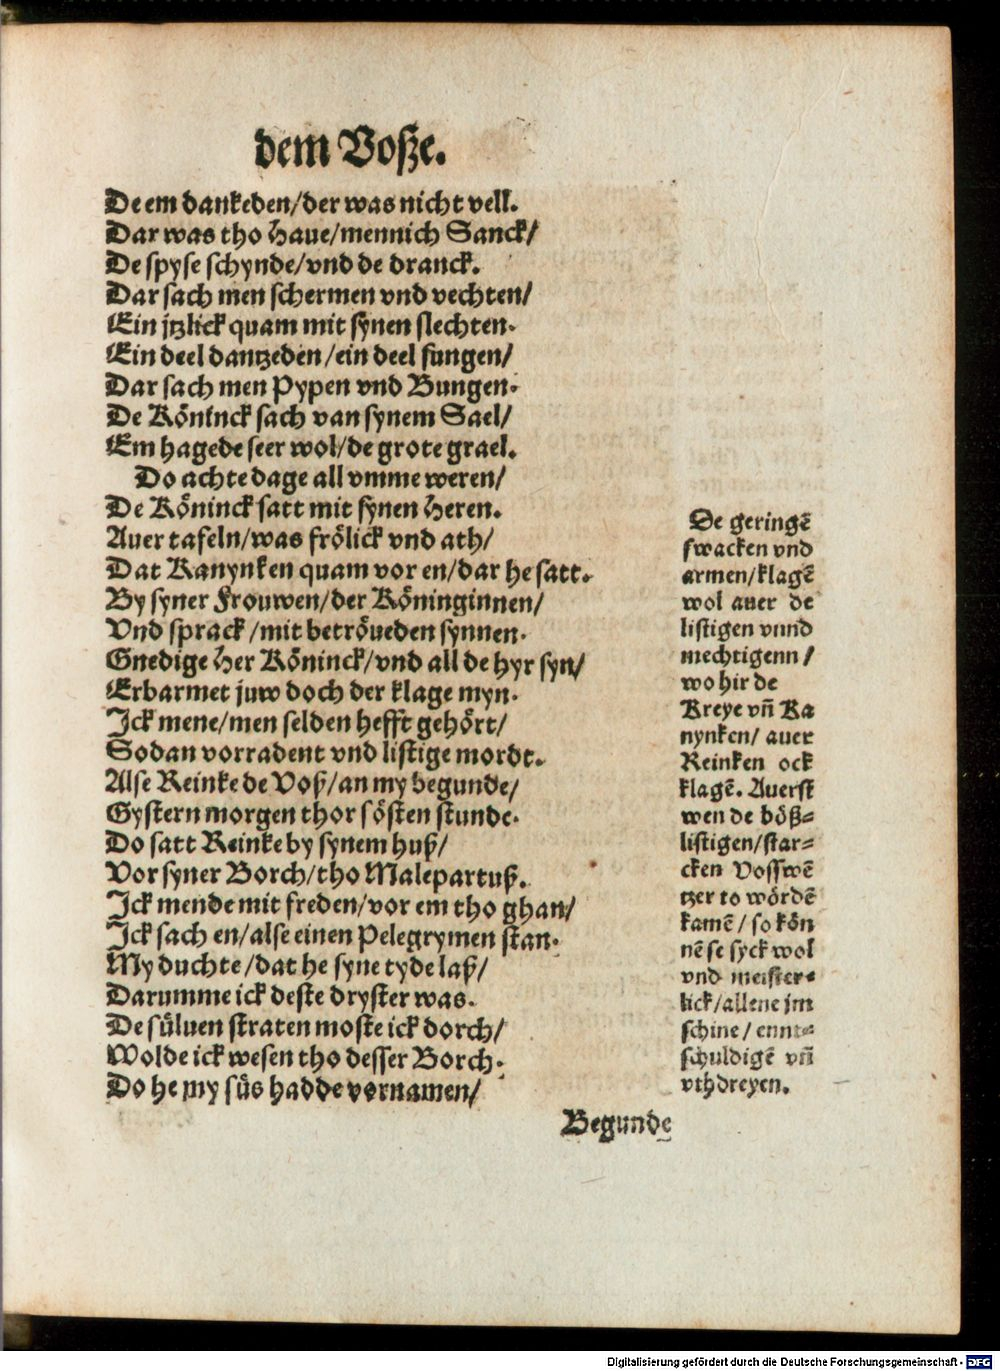 dem Voſze.
De em dankeden/der was nicht vell.
Dar was tho Haue/mennich Sanck/
De spyse schynde/vnd de dranck.
Dar sach men schermen vnd vechten/
Ein jtzlick quam mit synen slechten.
Ein deel dantzeden/ein deel sungen/
Dar sach men Pypen vnd Bungen.
De Köninck sach van synem Sael/
Em hagede seer wol/de grote grael.
Do achte dage all vmme weren/
De Köninck satt mit synen Heren.
Auer tafeln/was frölick vnd ath/
Dat Kanynken quam vor en/dar he satt.
By syner Frouwen/der Köninginnen/
Vnd sprack/mit betröueden synnen.
Gnedige Her Köninck/vnd all de hyr syn/
Erbarmet juw doch der klage myn.
Ick mene/men selden hefft gehört/
Sodan vorradent vnd listige mordt.
Alse Reinke de Voß/an my begunde/
Gystern morgen thor sösten stunde.
Do satt Reinke by synem huß/
Vor syner Borch/tho Malepartuß.
Ick mende mit freden/vor em tho ghan/
Ick sach en/alse einen Pelegrymen stan.
My duchte/dat he syne tyde laß/
Darumme ick deste dryster was.
De süluen straten moste ick dorch/
Wolde ick wesen tho desser Borch.
Do he my süs hadde vornamen/
Begunde
De geringẽ
swacken vnd
armen/klagẽ
wol auer de
listigen vnnd
mechtigenn/
wo hir de
Kreye vñ Ka
nynken/ auer
Reinken ock
klagẽ. Auerst
wen de böß=
listigen/star=
cken Vosswẽ
tzer to wördẽ
kamẽ/ so kön
nẽ se syck wol
vnd meister=
lick/allene jm
schine/ ennt=
schuldigẽ vñ
vthdreyen.
Digitalisierung gefördert durch die Deutsche Forschungsgemeinschaft - DFG